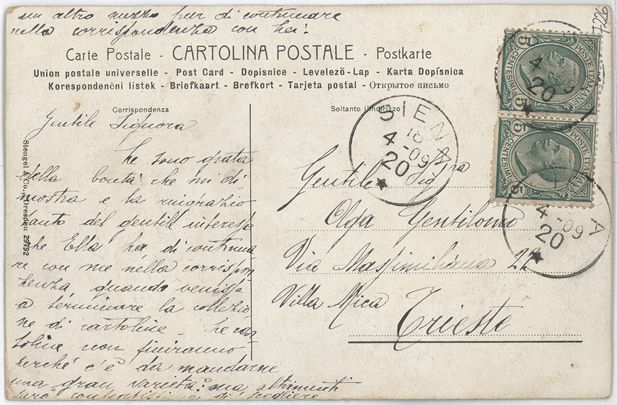 un altro mezzo per di continuare
nella corrispondenza con lei!
7226
Carte Postale - CARTOLINA POSTALE - Postkarte
Union postale universelle - Post Card - Dopisnice - Levelező-Lap - Karta Dopisnica
Korespondenční listek - Briefkaart - Brefkort - Tarjeta postal - Открытое письмо
Corrispondenza
Soltanto l'indirizzo
Stengel & Co., Dresden 29792
Gentile Signora
Le sono grata
della bontà che mi di
mostra e La ringrazio
tanto del gentil interesse
che Ella ha di continua
re con me nella corrispon
denza, quando venisse
a terminare la collezio
ne di cartoline Le car
toline non finiranno
perché c'è da mandarne
una gran varietà: ma altrimenti
Gentile Sigra
Olga Gentilomo
Via Massimiliana 22
Villa Mica
Trieste
SIENA
18
4-09
20
4
20
A
4-09
20
5 5
CENTESIMI
POSTE ITALIANE
5 5
CENTESIMI